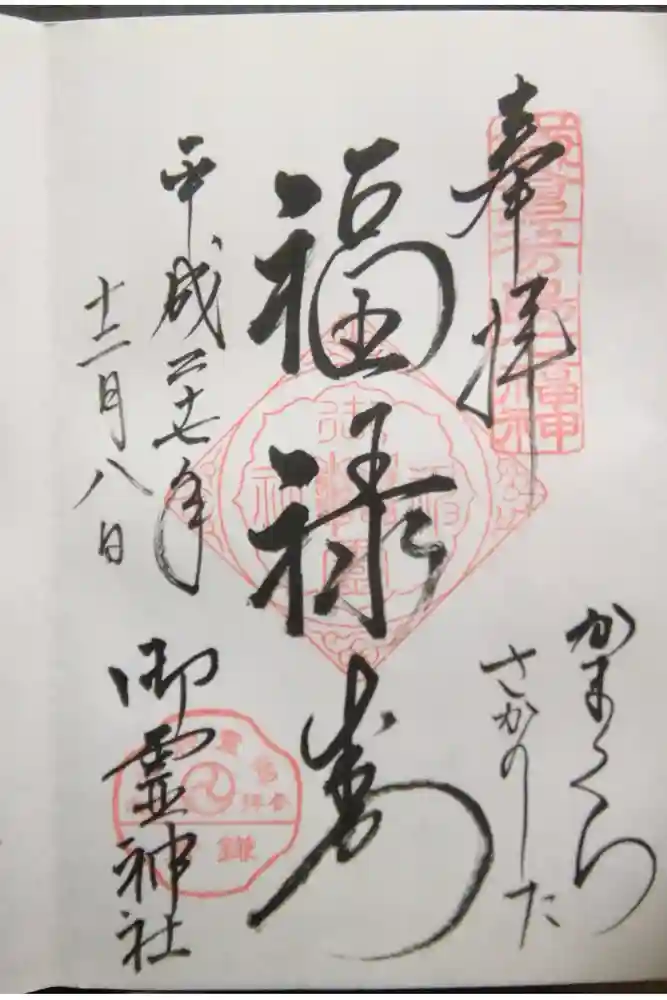 奉拝
かまくら
さかのした
福禄寿
平成二十七年
十二月八日
御霊神社